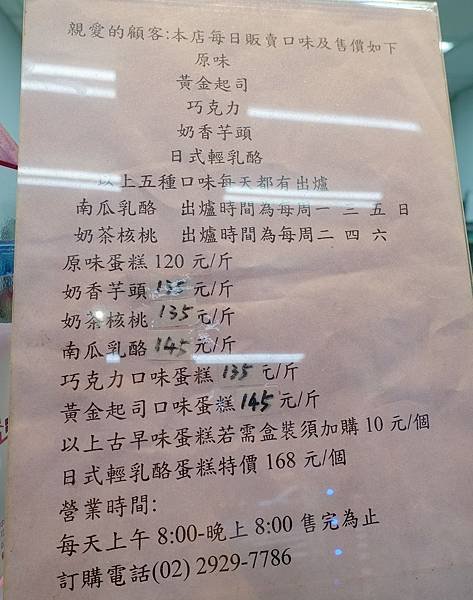 親愛的顧客:本店每日販賣口味及售價如下
原味
黃金起司
巧克力
奶香芋頭
日式輕乳酪
以上五種口味每天都有出爐
南瓜乳酪 出爐時間為每周一 三 五 日
奶茶核桃 出爐時間為每周二 四 六
原味蛋糕 120 元/斤
奶香芋頭 135 元/斤
奶茶核桃 135 元/斤
南瓜乳酪 145 元/斤
巧克力口味蛋糕 135 元/斤
黃金起司口味蛋糕 145 元/斤
以上古早味蛋糕若需盒裝須加購 10 元/個
日式輕乳酪蛋糕特價 168 元/個
營業時間:
每天上午 8:00-晚上 8:00 售完為止
訂購電話(02) 2929-7786